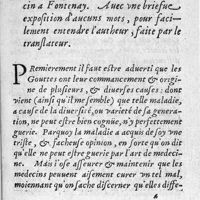 cin a Fontenay. Auec vne briefue
exposition d'aucuns mots, pour faci-
lement entendre l'autheur, faite par le
translateur.
PREmierement il faut estre aduerti que les
Gouttes ont leur commancement & origi-
ne de plusieurs, & diuerses causes: dont
vient (ainsi qu'il me semble) que telle maladie,
a cause de la diuersité, ou varieté de sa genera-
tion, ne peut estre bien cognüe, n'y perfectement
guerie. Parquoy la maladie a acquis de soy vne
triste, & facheuse opinion, en sorte qu'on dit
qu'elle ne peut estre guerie par l'art de medeci-
ne. Mais i'ose asseurer & maintenir que les
medecins peuuent aisement curer vn tel mal,
moiennant qu'on sache discerner qu'elles diffe-